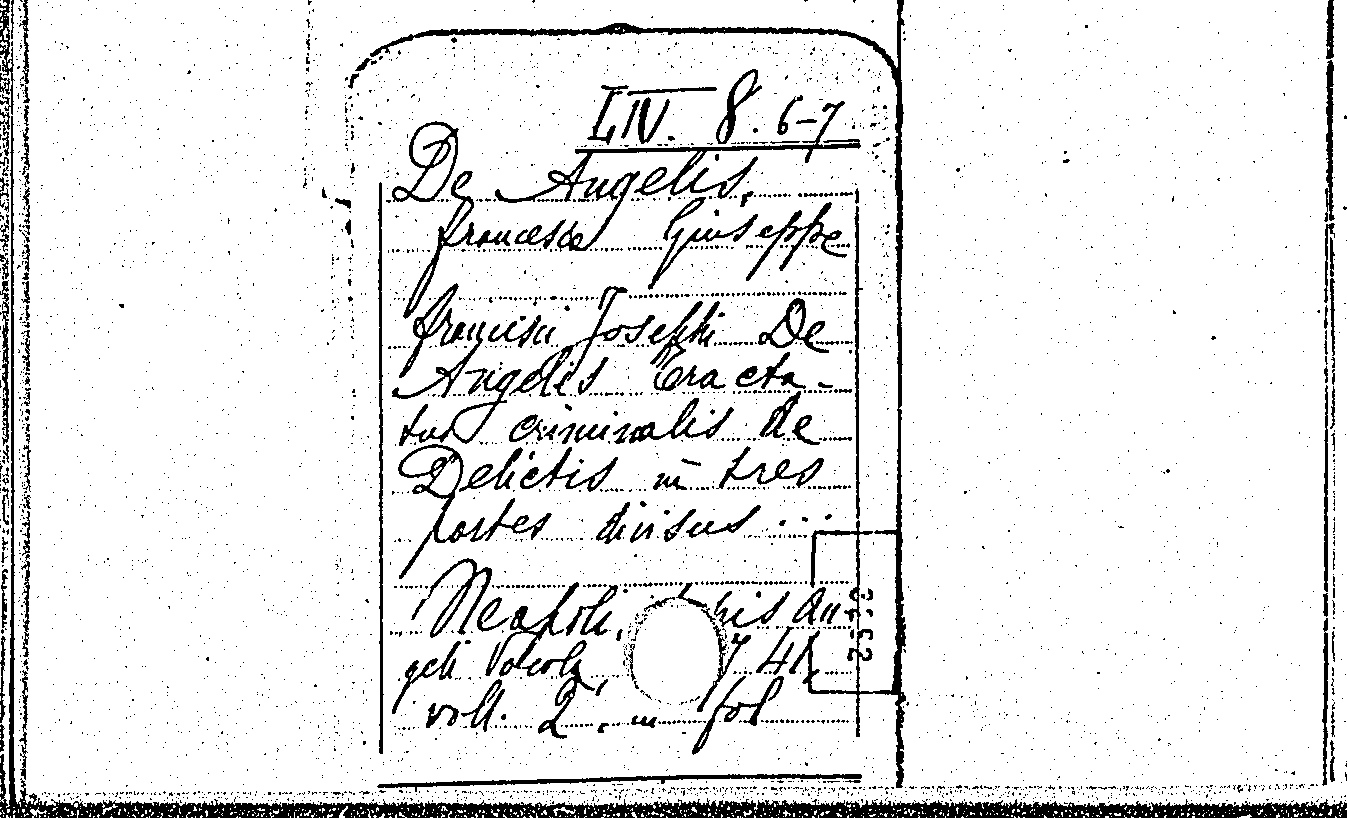 LIV. 8. 6-7
De Angelis,
Francesco Giuseppe
Francisci Josephi De
Angelis Tracta-
tus criminalis de
Delictis in tres
partes divisus ...
Neapoli, An
geli Vocola 1741,
voll. 2. in fol